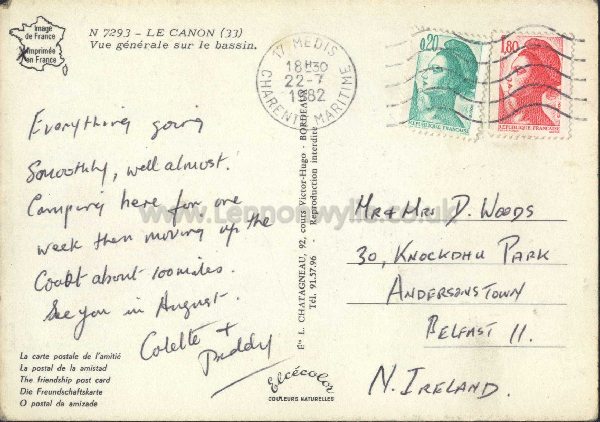 Image
de France
Imprimée
en France
N 7293 - LE CANON (33)
Vue générale sur le bassin.
17 MEDIS
18H30
22-7
1982
CHARENTE MARITIME
0,20
REPUBLIQUE FRANÇAISE
1,80
REPUBLIQUE FRANÇAISE
Everything going
smoothly, well almost.
Camping here for one
week then moving up the
Coast about 100 miles.
See you in August.
Colette +
Paddy
Éts L. CHATAGNEAU, 92, cours Victor-Hugo - BORDEAUX
Tél. 91.57.96 - Reproduction interdite
MR & MRS D. WOODS
30, KNOCKDHU PARK
ANDERSONSTOWN
BELFAST 11.
N. IRELAND.
La carte postale de l'amitié
La postal de la amistad
The friendship post card
Die Freundschaftskarte
O postal da amizade
Elcécolor
COULEURS NATURELLES
www.Lennonwylie.co.uk